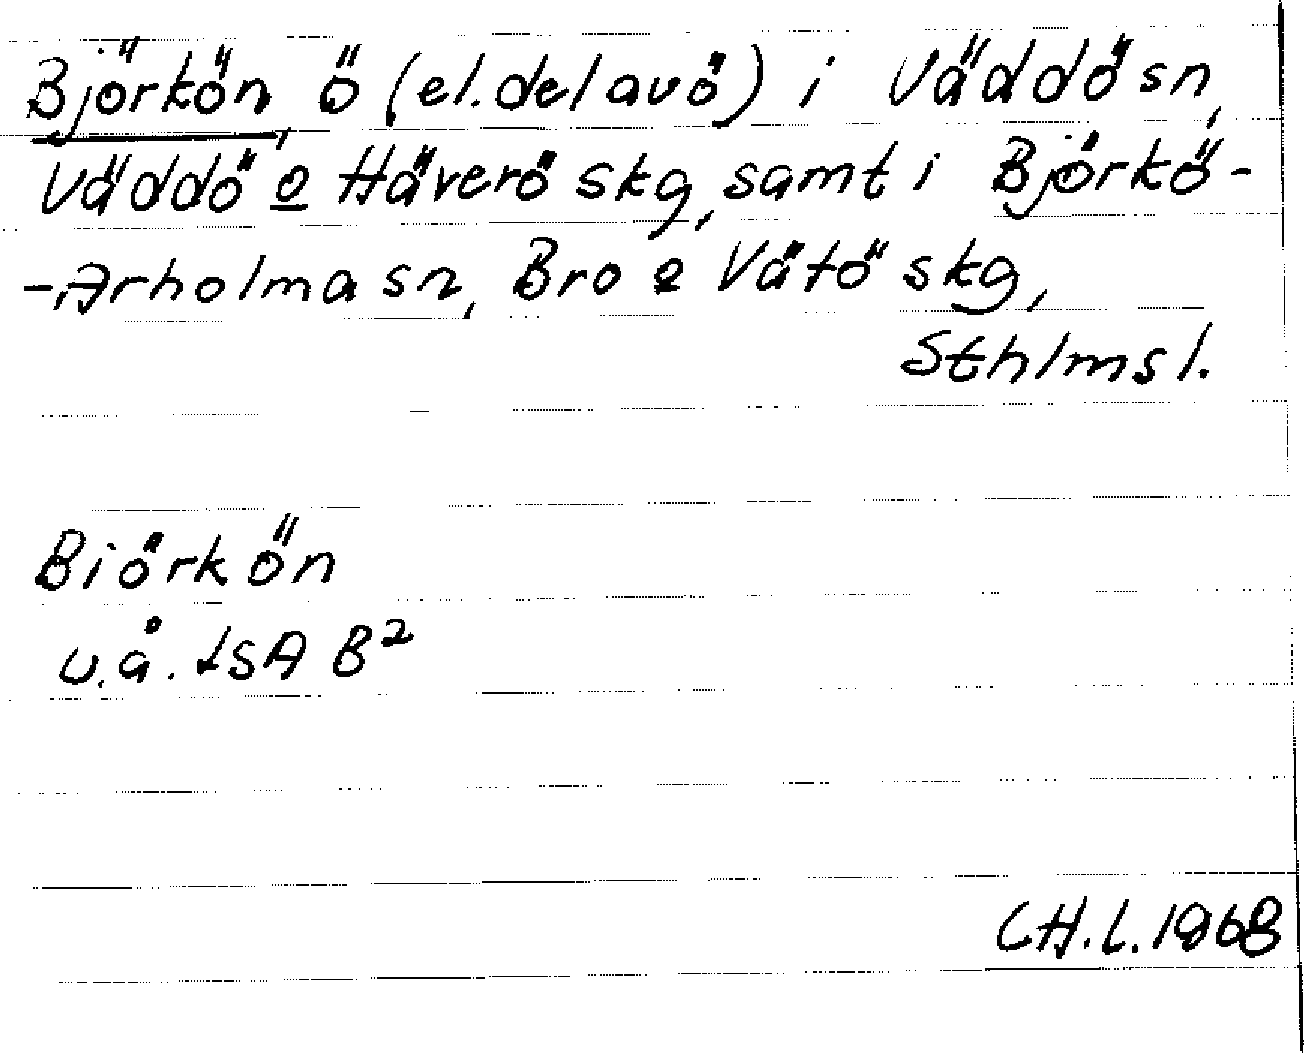 Björkön, ö (el. del av ö) i Väddö sn,
Väddö o Häverö skg, samt i Björkö-
-Arholma sn, Bro o Vätö skg,
Sthlms l.
Biörkön
u.å. LSA B²
CH.L. 1968